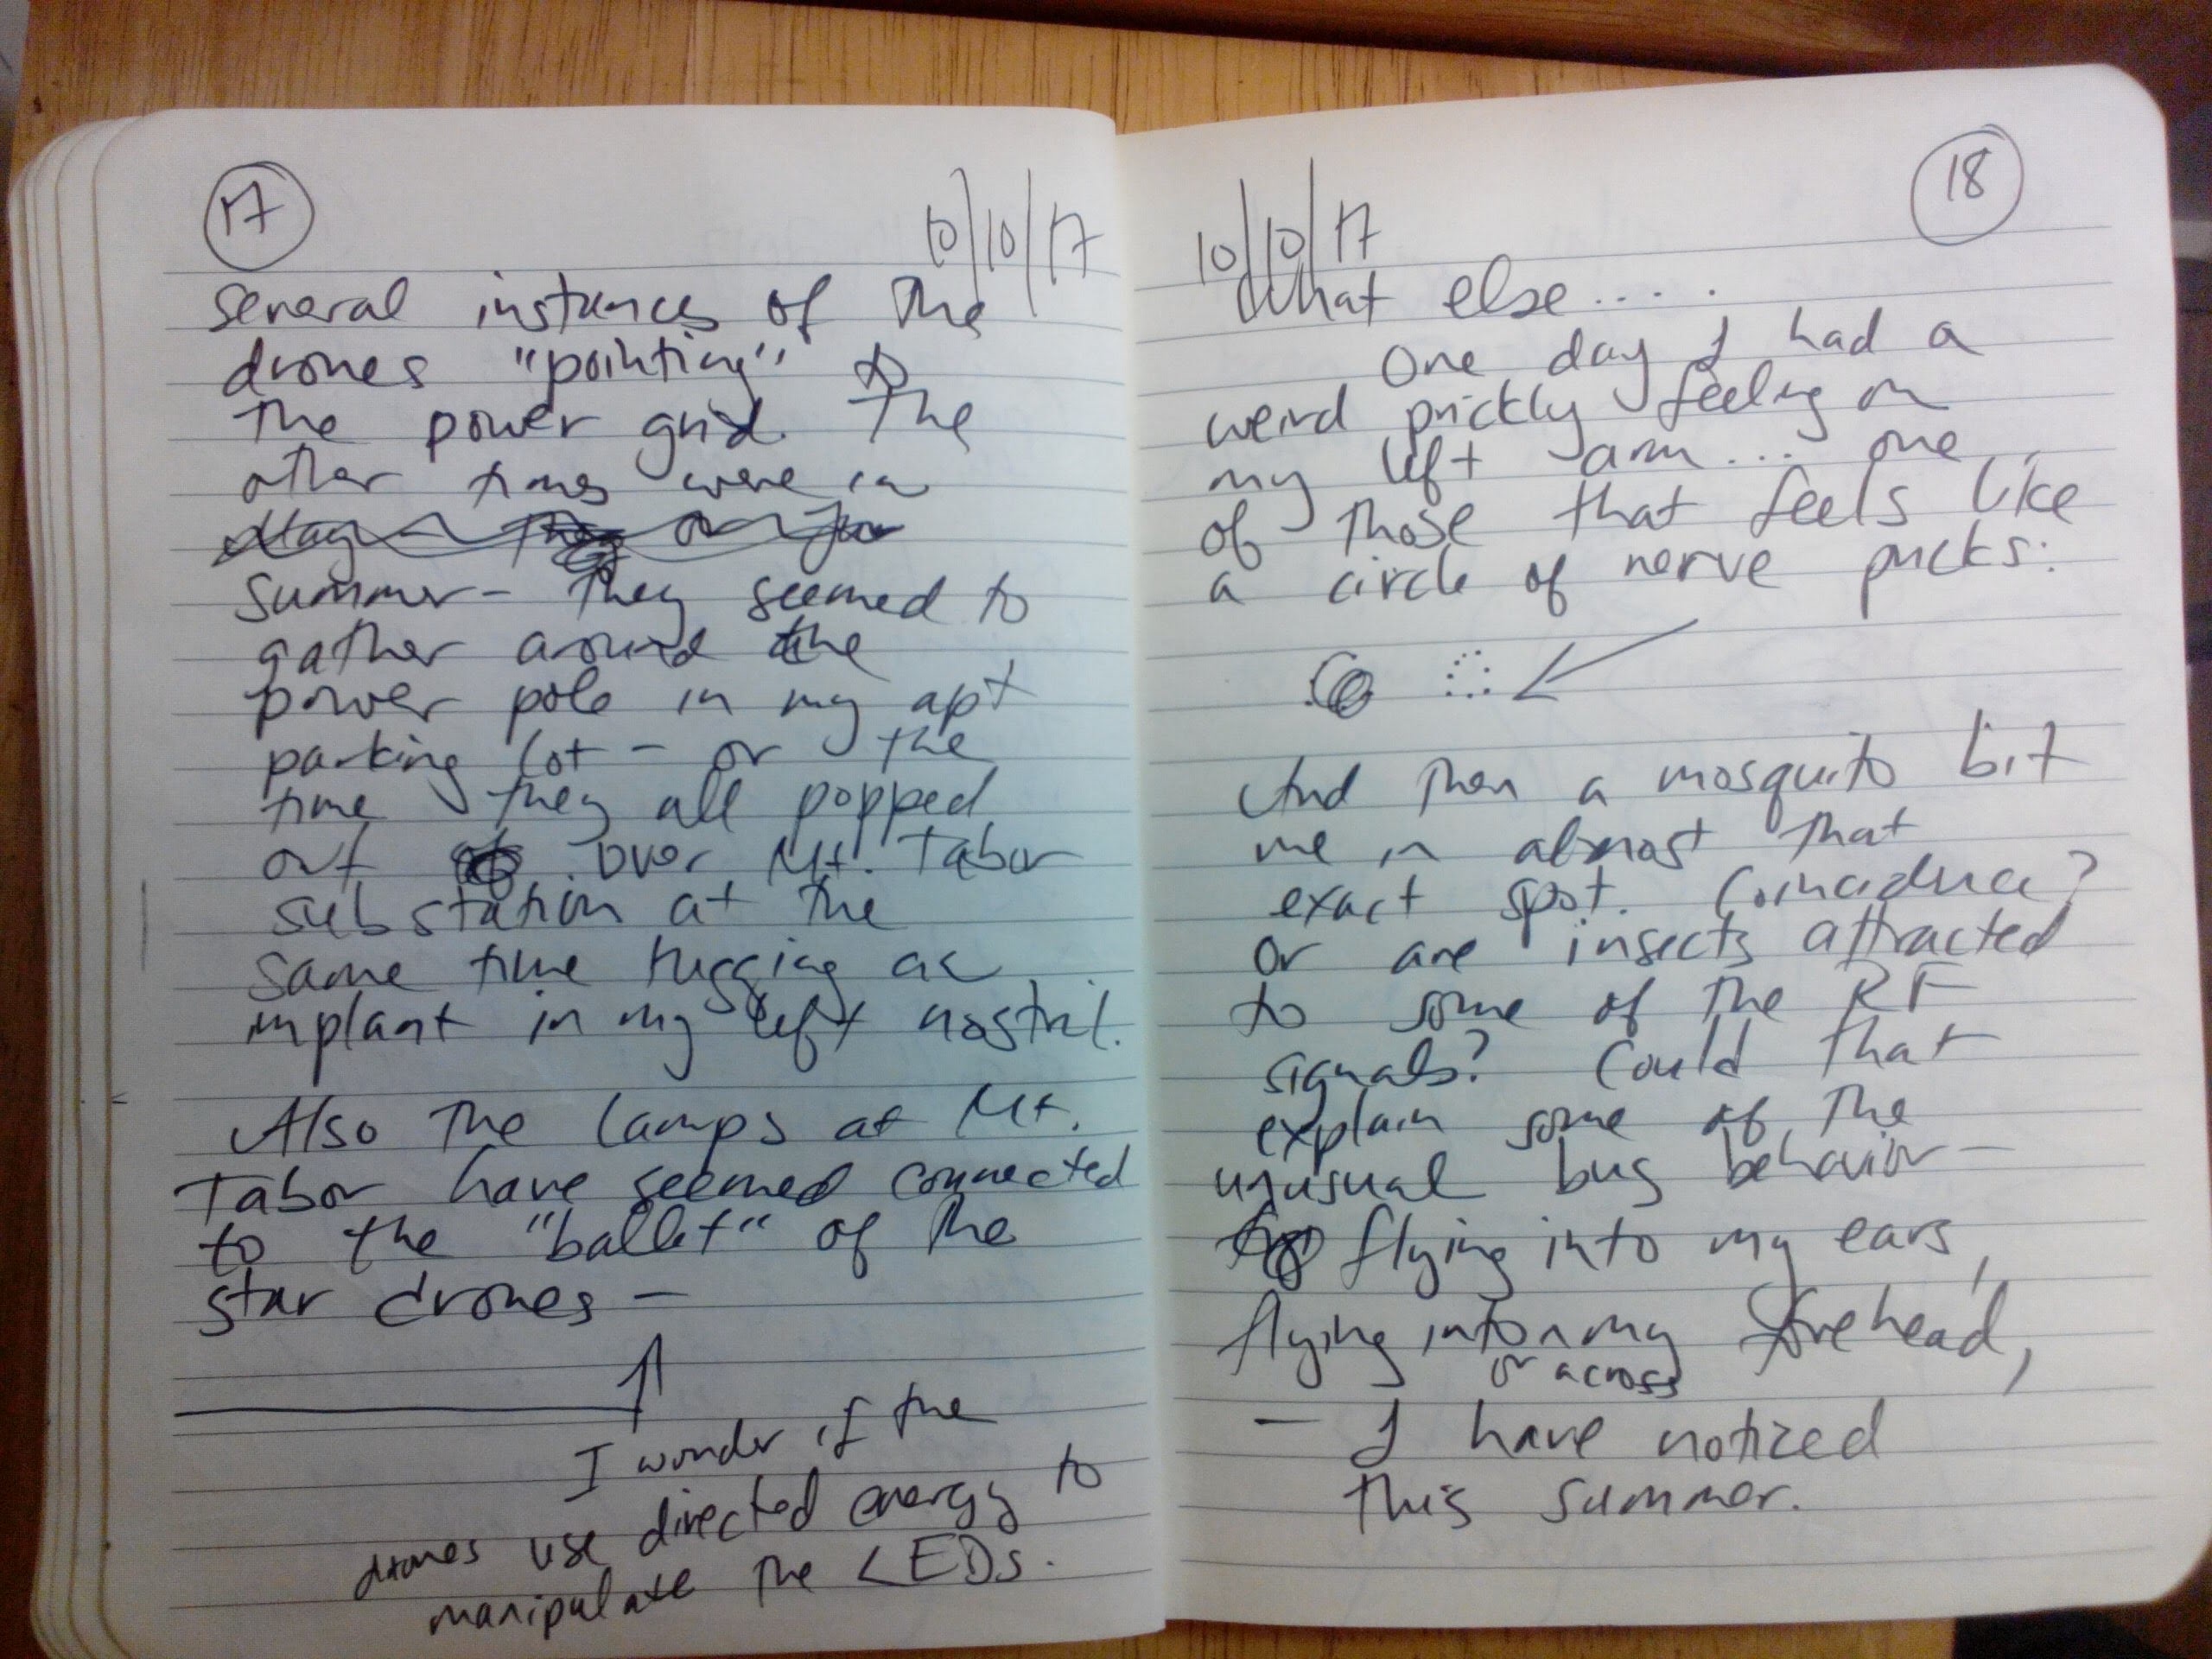 17
10/10/17
several instances of the
drones "pointing" to
the power grid. The
other times were in
summer - they seemed to
gather around the
power pole in my apt
parking lot - or the
time they all popped
out over Mt. Tabor
substation at the
same time tugging an
implant in my left nostril.
Also the lamps at Mt.
Tabor have seemed connected
to the "ballet" of the
star drones -
I wonder if the
drones use directed energy to
manipulate the LEDs.
18
10/10/17
What else....
One day I had a
weird prickly feeling on
my left arm... one
of those that feels like
a circle of nerve pricks:
And then a mosquito bit
me in almost that
exact spot. Coincidence?
Or are insects attracted
to some of the RF
signals? Could that
explain some of the
unusual bug behavior -
flying into my ears,
flying into my forehead,
or across
- I have noticed
this summer.